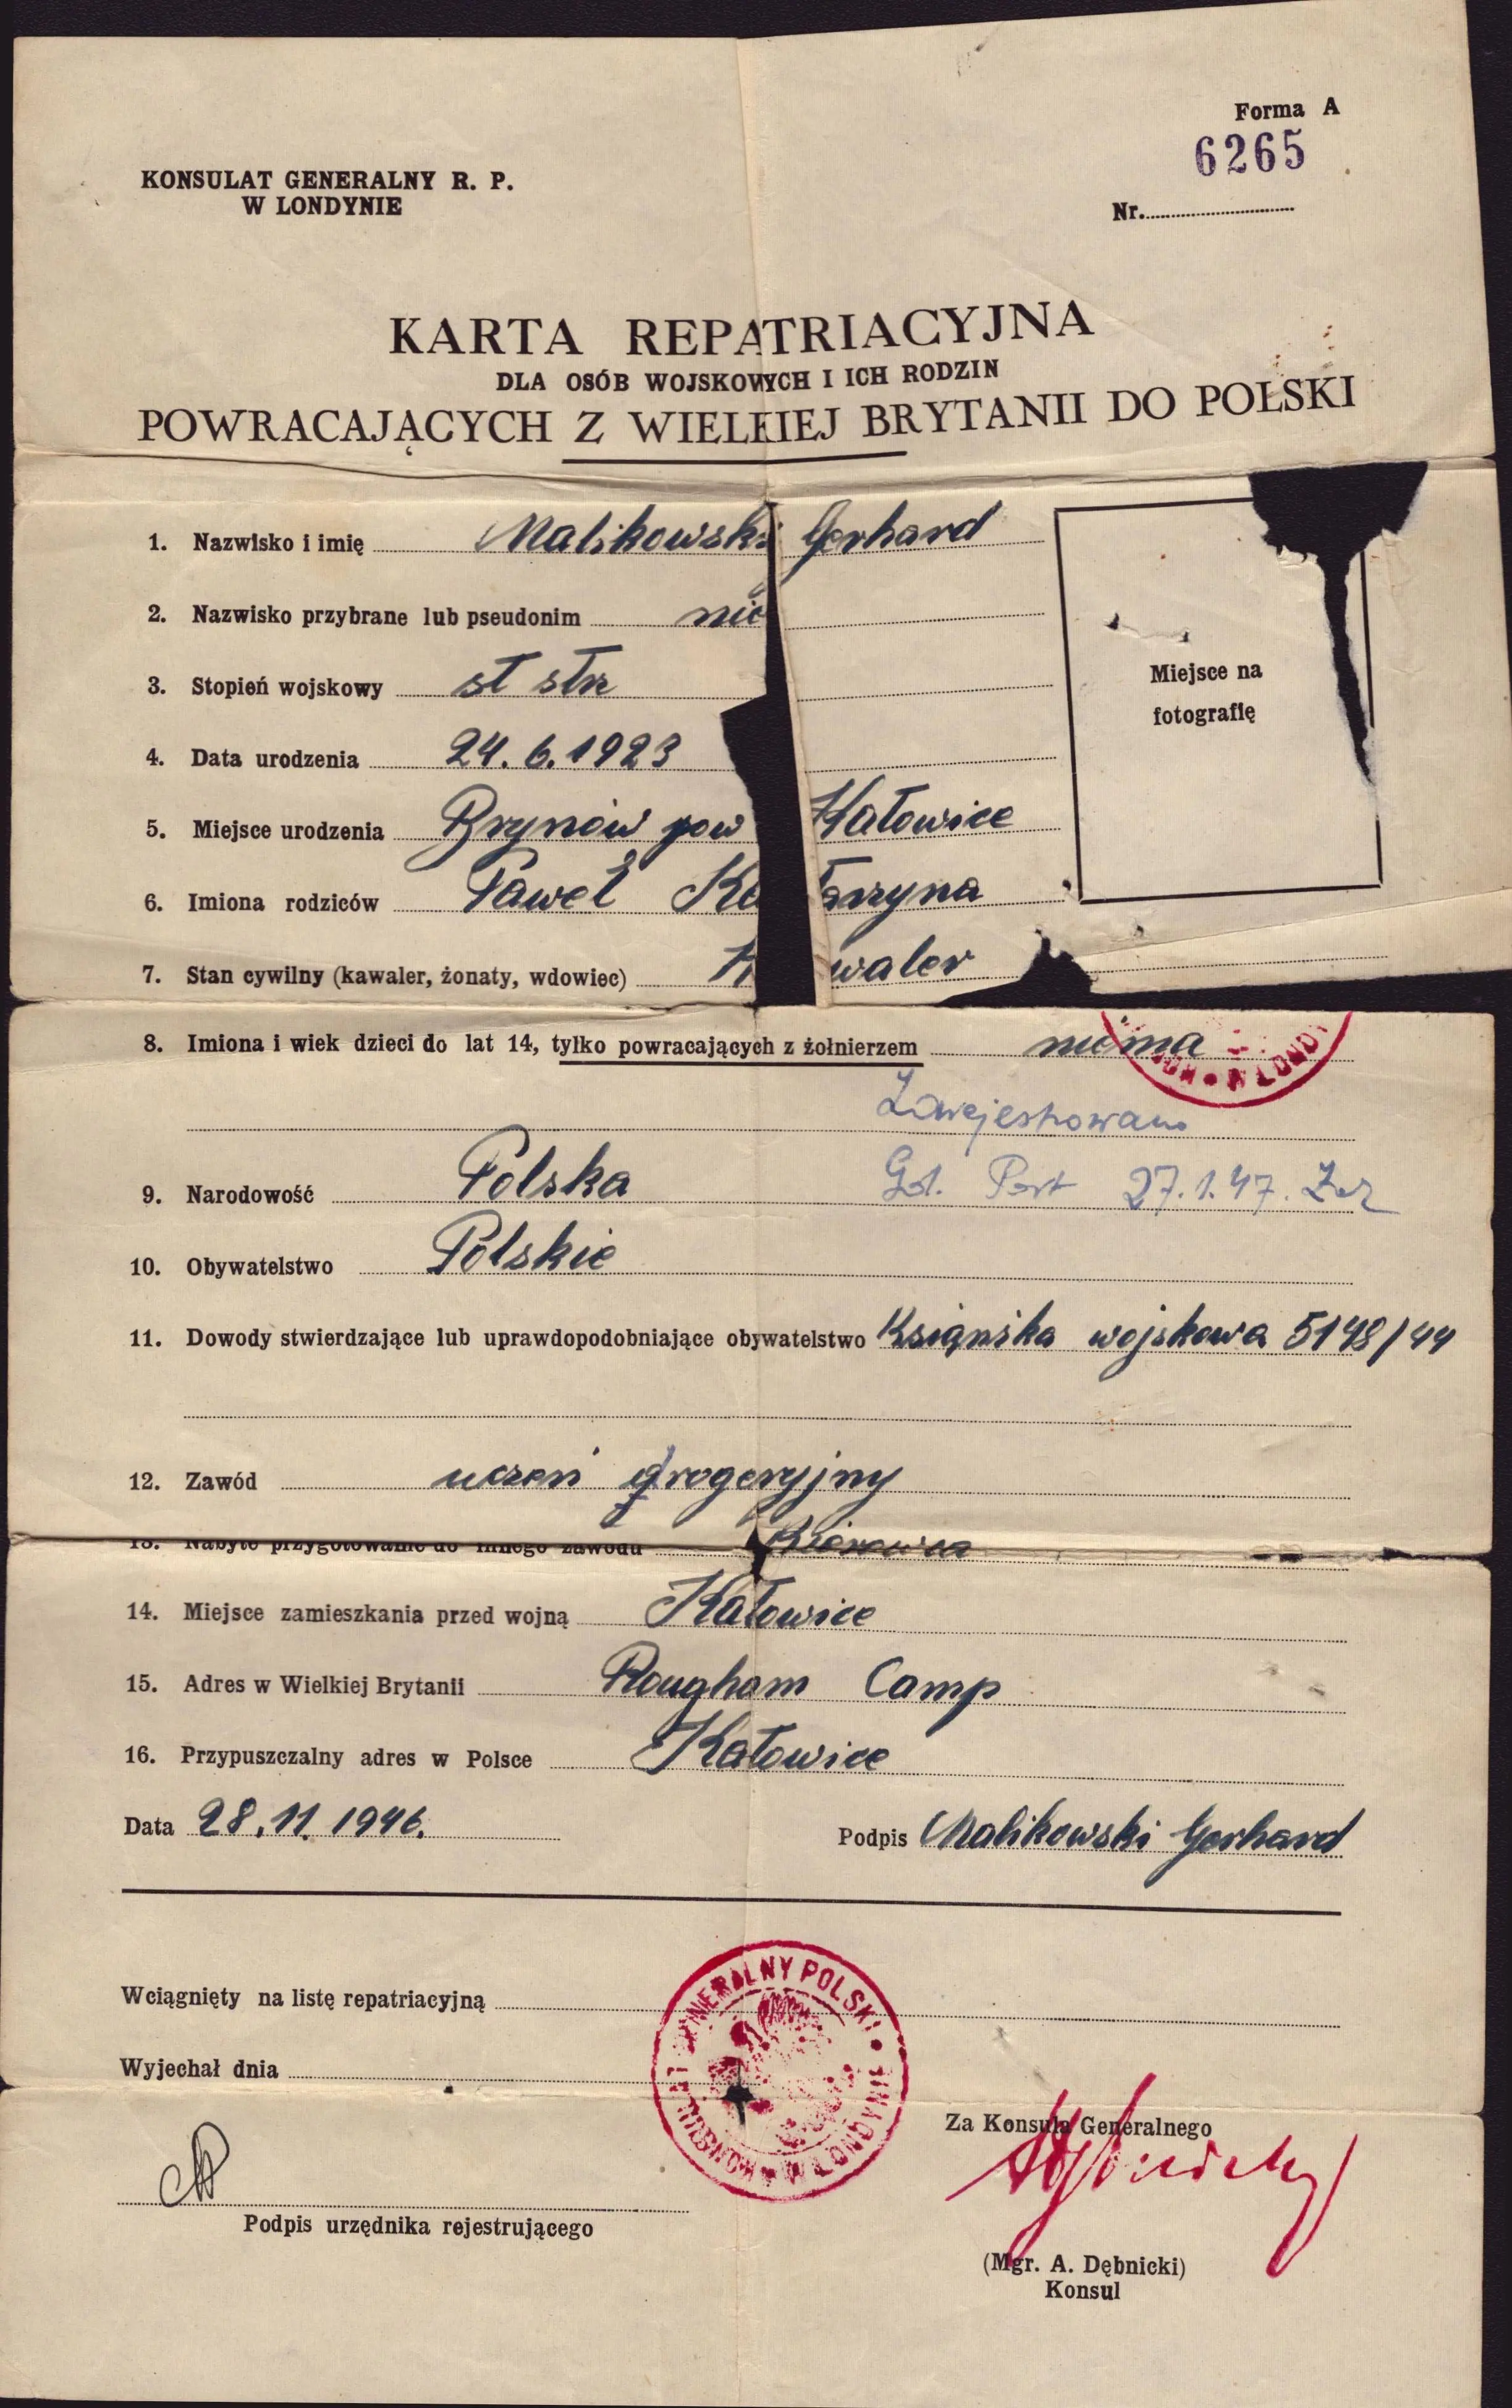 Forma A
6265
KONSULAT GENERALNY R. P.
W LONDYNIE
Nr.
KARTA REPATRIACYJNA
DLA OSÓB WOJSKOWYCH I ICH RODZIN
POWRACAJĄCYCH Z WIELKIEJ BRYTANII DO POLSKI
1. Nazwisko i imię Malikowski Gerhard
2. Nazwisko przybrane lub pseudonim nie
3. Stopień wojskowy st strz
4. Data urodzenia 24.6.1923
5. Miejsce urodzenia Brynów pow Katowice
6. Imiona rodziców Paweł Katarzyna
7. Stan cywilny (kawaler, żonaty, wdowiec) Kawaler
Miejsce na
fotografię
8. Imiona i wiek dzieci do lat 14, tylko powracających z żołnierzem niema
Zarejestrowano
Gd. Port 27.1.47.
9. Narodowość Polska
10. Obywatelstwo Polskie
11. Dowody stwierdzające lub uprawdopodobniające obywatelstwo Książka wojskowa 5148/44
12. Zawód uczeń drogeryjny
13. Nabyte przygotowanie do innego zawodu
14. Miejsce zamieszkania przed wojną Katowice
15. Adres w Wielkiej Brytanii Rougham Camp
16. Przypuszczalny adres w Polsce Katowice
Data 28.11.1946. Podpis Malikowski Gerhard
Wciągnięty na listę repatriacyjną
Wyjechał dnia
KONSULAT GENERALNY POLSKI W LONDYNIE
Za Konsula Generalnego
Podpis urzędnika rejestrującego
(Mgr. A. Dębnicki)
Konsul